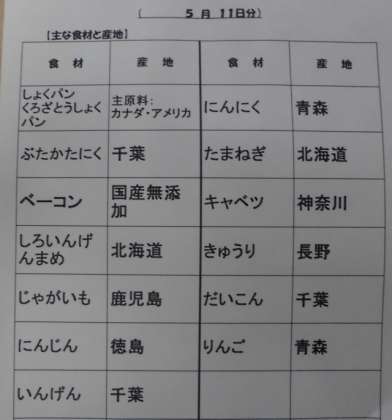 ( 5 月 11日分)
【主な食材と産地】
食 材 産 地 食 材 産 地
しょくパン
くろざとうしょく
パン
主原料:
カナダ・アメリカ
にんにく
青森
ぶたかたにく
千葉
たまねぎ
北海道
ベーコン
国産無添
加
キャベツ
神奈川
しろいんげ
んまめ
北海道
きゅうり
長野
じゃがいも
鹿児島
だいこん
千葉
にんじん
徳島
りんご
青森
いんげん
千葉